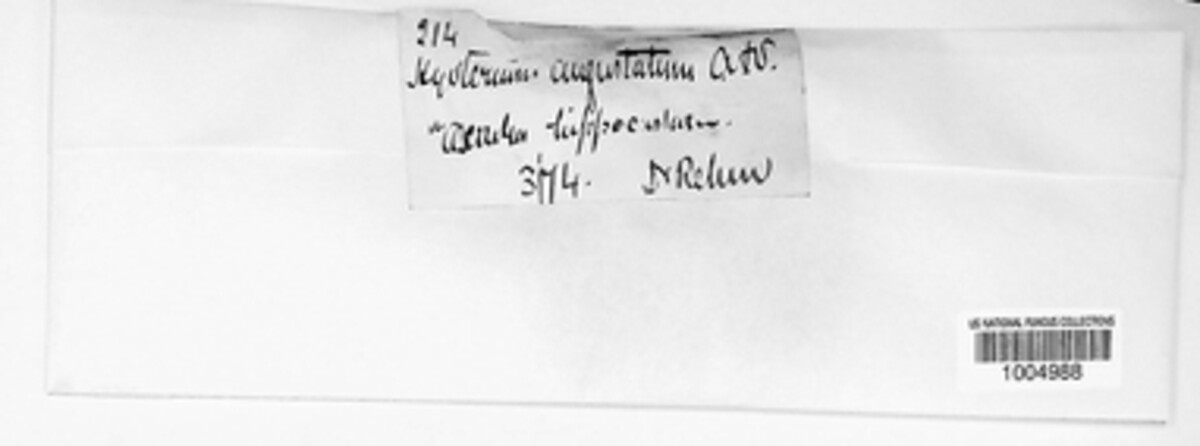 214
Hysterium angustatum A+S.
Aesculus hippocastan.
3/74. Dr Rehm
US NATIONAL FUNGUS COLLECTIONS
1004988